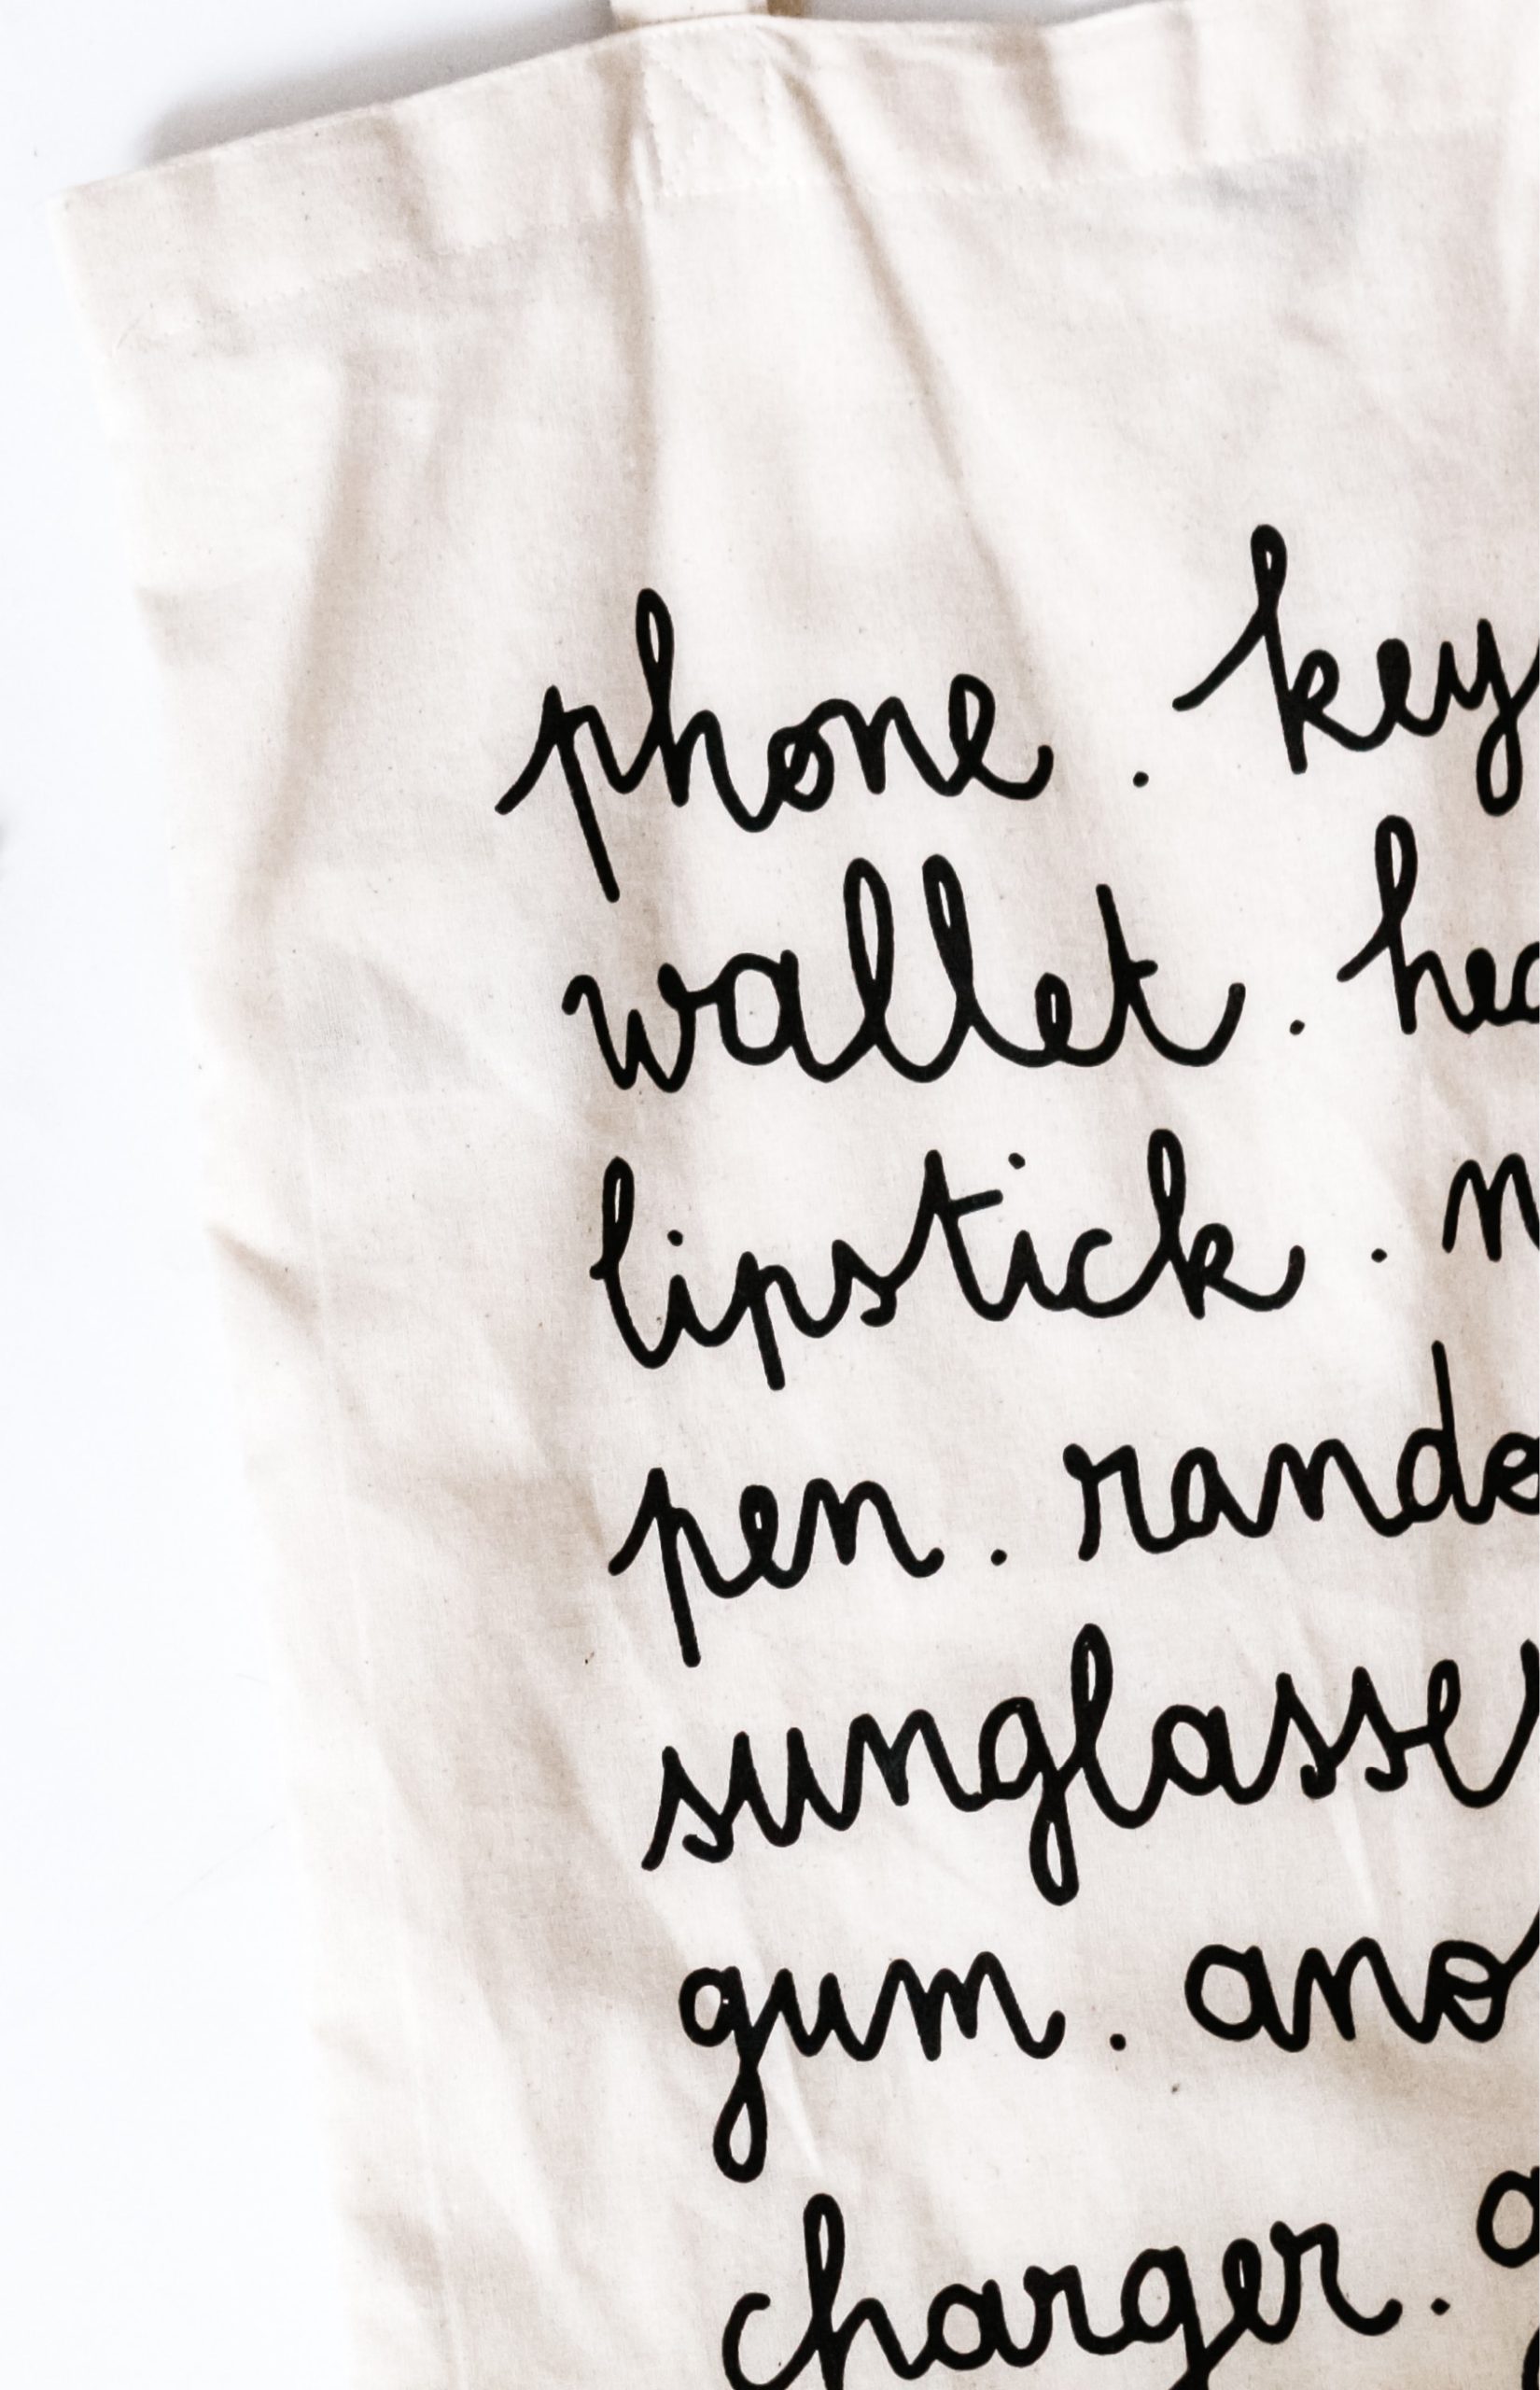 phone . key
wallet . hea
lipstick .
pen . rando
sunglasses
gum . ano
charger .